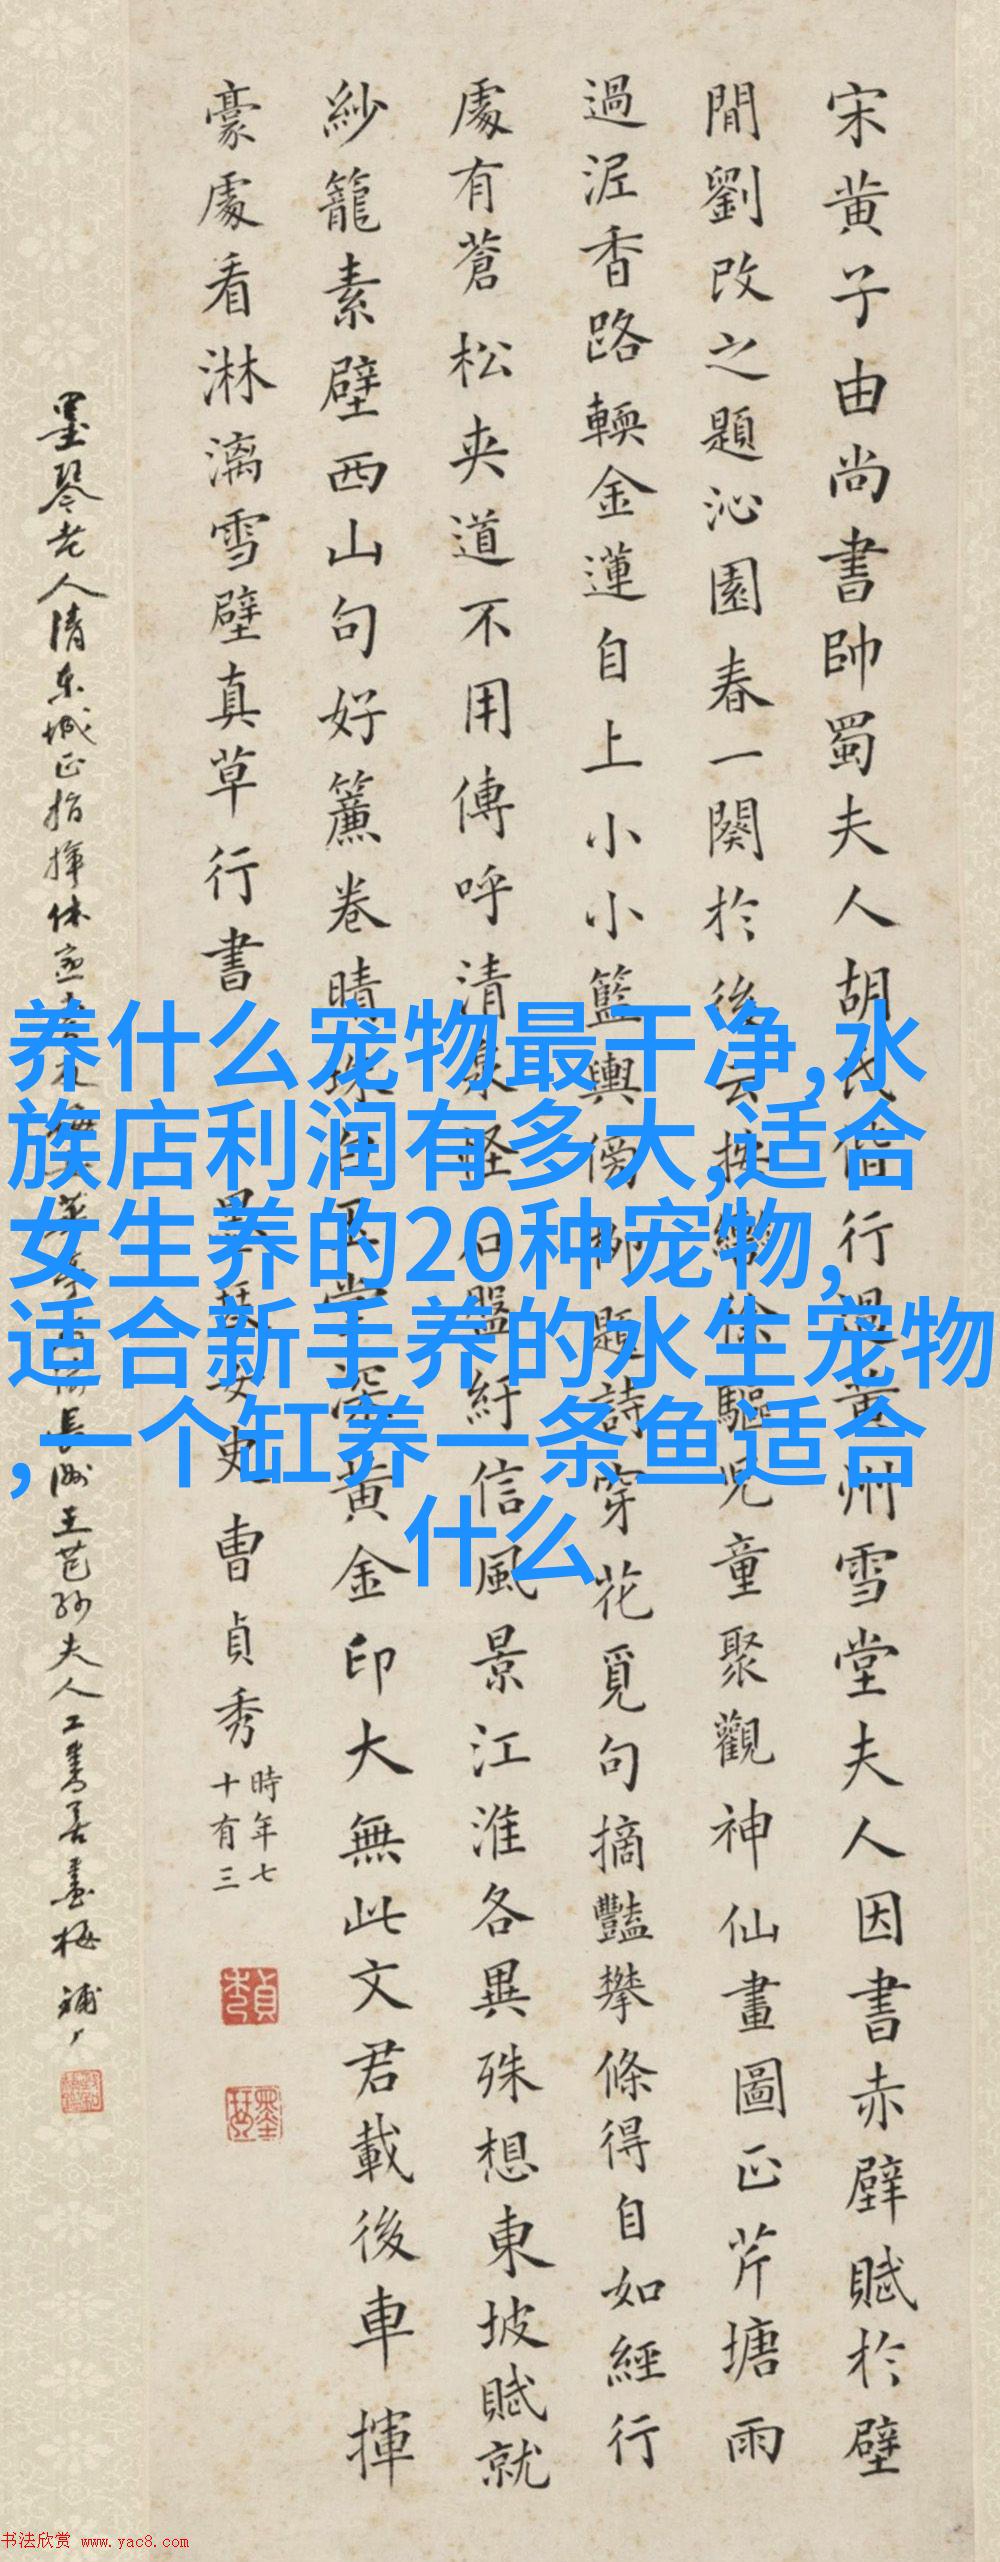 宋黄子由尚書帥蜀夫人胡氏偕行過黄州雪堂夫人因書赤壁賦於壁
間劉改之題沁園春一闋於後云按轡徐驅兒童聚觀神仙畫圖正芹塘雨
過泥香路輭金蓮自上小小籃輿傍柳題詩穿花覓句摘豔攀條得自如經行
處有蒼松夾道不用傳呼清泉怪石盤紆信風景江淮各異殊想東坡賦就
紗籠素壁西山句好簾卷晴珠白玉堂深黄金印大無此文君載後車揮
豪處看淋漓雪壁真草行書
墨琹女史曹貞秀
時年七
十有三
墨琴老人清東城正指揮休
長洲王芑孫夫人工書善畫梅
養什么宠物最干净,水
族店利润有多大,适合
女生养的20种宠物,
适合新手养的水生宠物
,一个缸养一条鱼适合
什么
书法欣赏 www.yac8.com